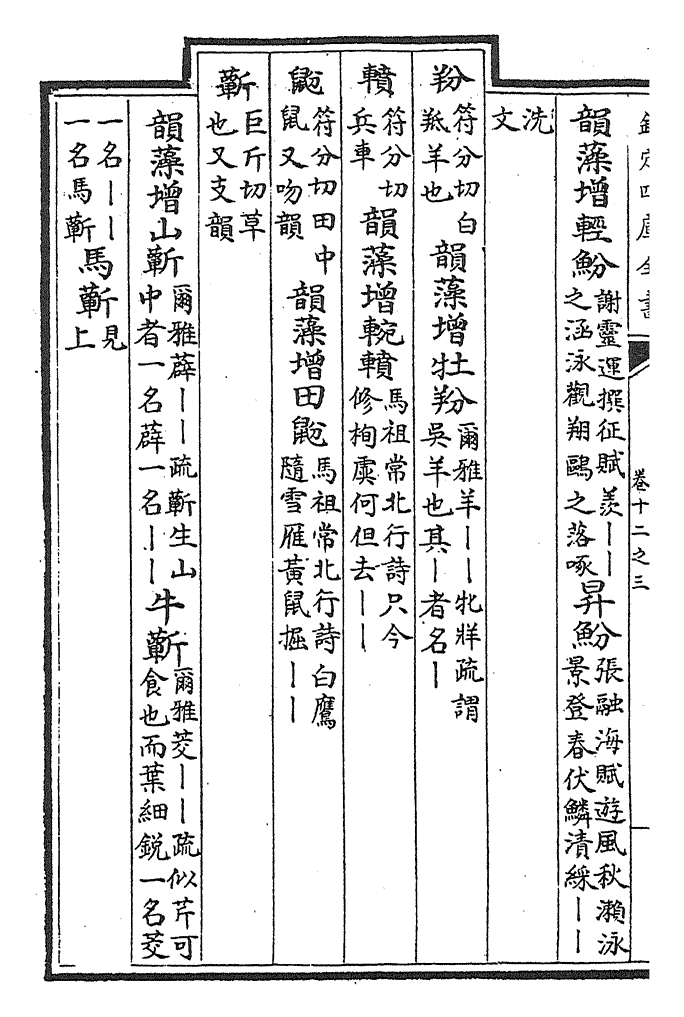 欽定四庫全書
卷十二之三
韻藻增輕魵謝靈運撰征賦羨丨丨之涵泳觀翔鷗之落啄昇魵張融海賦遊風秋瀨泳景登春伏鱗漬綵丨丨
洗文
羒符分切白羝羊也韻藻增牡羒爾雅羊丨丨牝牂疏謂吳羊也其丨者名丨
轒符分切兵車韻藻增輓轒馬祖常北行詩只今修枸虡何但去丨丨
鼢符分切田中鼠又吻韻韻藻增田鼢馬祖常北行詩白鷹隨雪雁黃鼠掘丨丨
蘄巨斤切草也又支韻
韻藻增山蘄爾雅薜丨丨疏蘄生山中者一名薜一名丨丨牛蘄爾雅茭丨丨疏似芹可食也而葉細銳一名茭
一名丨丨一名馬蘄馬蘄見上